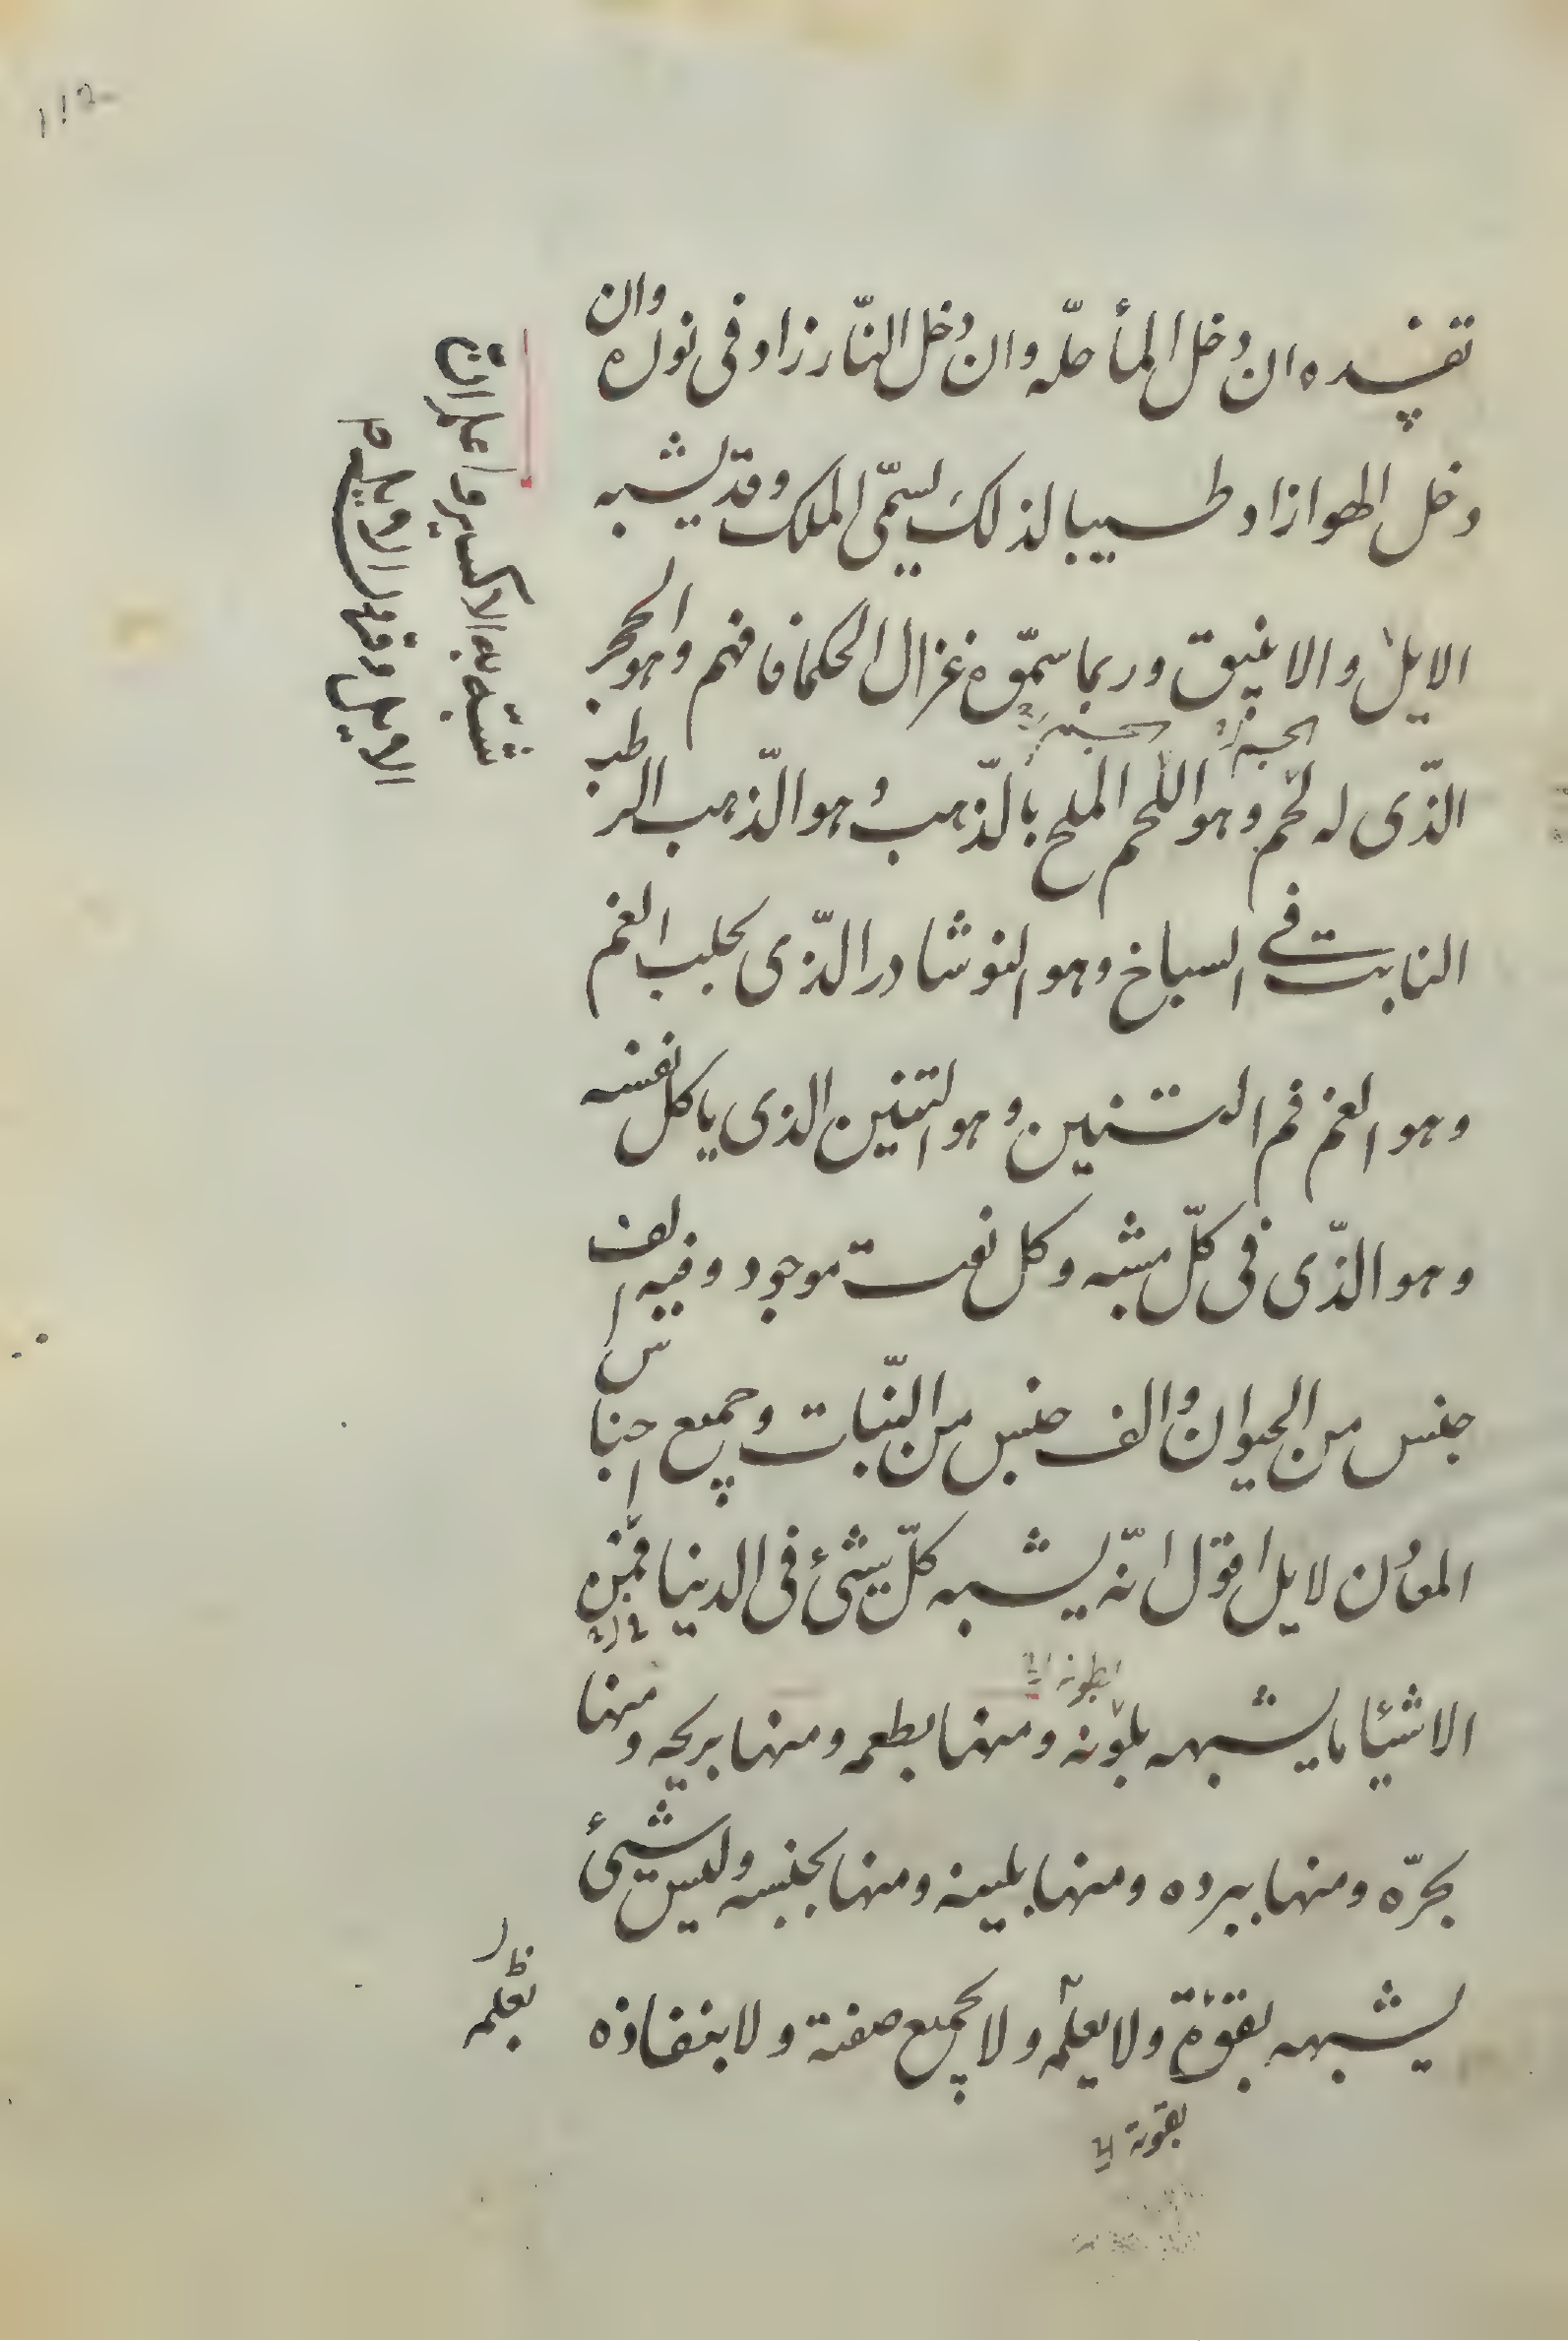 تفسده ان دخل المأ حلّه وان دخل النّار زاد فى نوره وان
دخل الهوا زاد طيبا لذلك يسمّى الملك وقد يشبه
الايل والانيق وربما سمّوه غزال الحكما فافهم وهو الحجر
الذّى له لحم وهو اللحم الملح بالذّهب وهو الذّهب الرطب
النابت فى السباخ وهو النوشادر الذّى يحلب الغنم
وهو الغنم فم التنين وهو التنين الذى ياكل نفسه
وهو الذّى فى كلّ مشبه وكل نعت موجود وفيه الف
جنس من الحيوان والف جنس من النّبات وجميع اجناس
المعادن لا بل اقول انّه يشبه كلّ شئ فى الدنيا فمن
الاشيا ما يشبهه بلونه ومنها بطعمه ومنها بريحه ومنها
بحرّه ومنها ببرده ومنها بلينه ومنها بجنسه وليس شيئ
يشبهه بقوّة ولا بعلمه ولا بجميع صفته ولا بنفاذه
بقوته
شبّه به الاكسير واعلم ان
الايل وقد